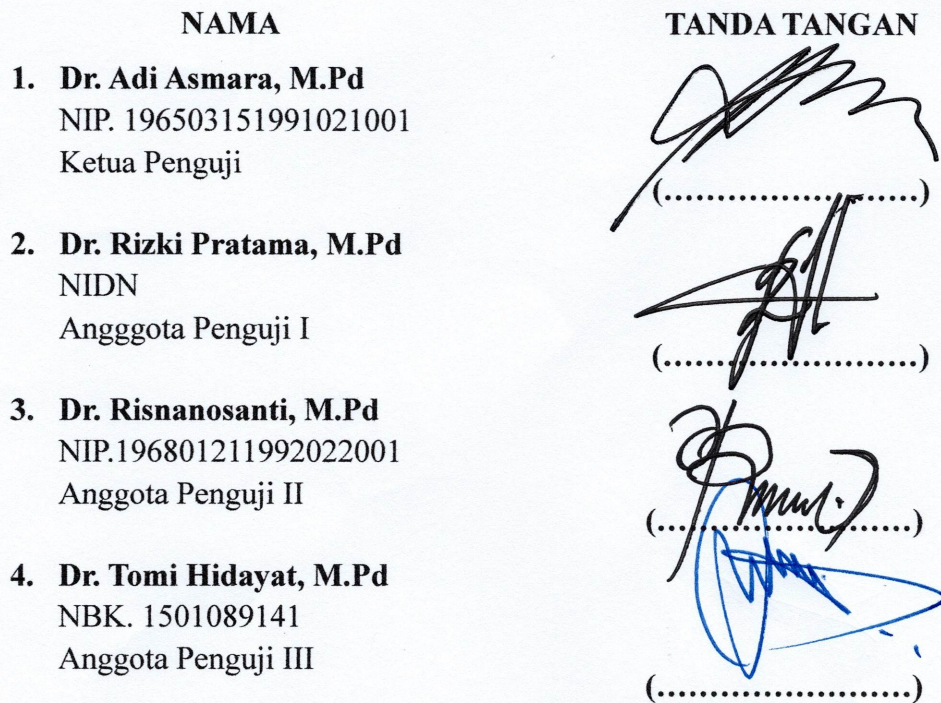 NAMA TANDA TANGAN
1. Dr. Adi Asmara, M.Pd
NIP. 196503151991021001
Ketua Penguji
(........................)
2. Dr. Rizki Pratama, M.Pd
NIDN
Angggota Penguji I
(........................)
3. Dr. Risnanosanti, M.Pd
NIP.196801211992022001
Anggota Penguji II
(........................)
4. Dr. Tomi Hidayat, M.Pd
NBK. 1501089141
Anggota Penguji III
(........................)